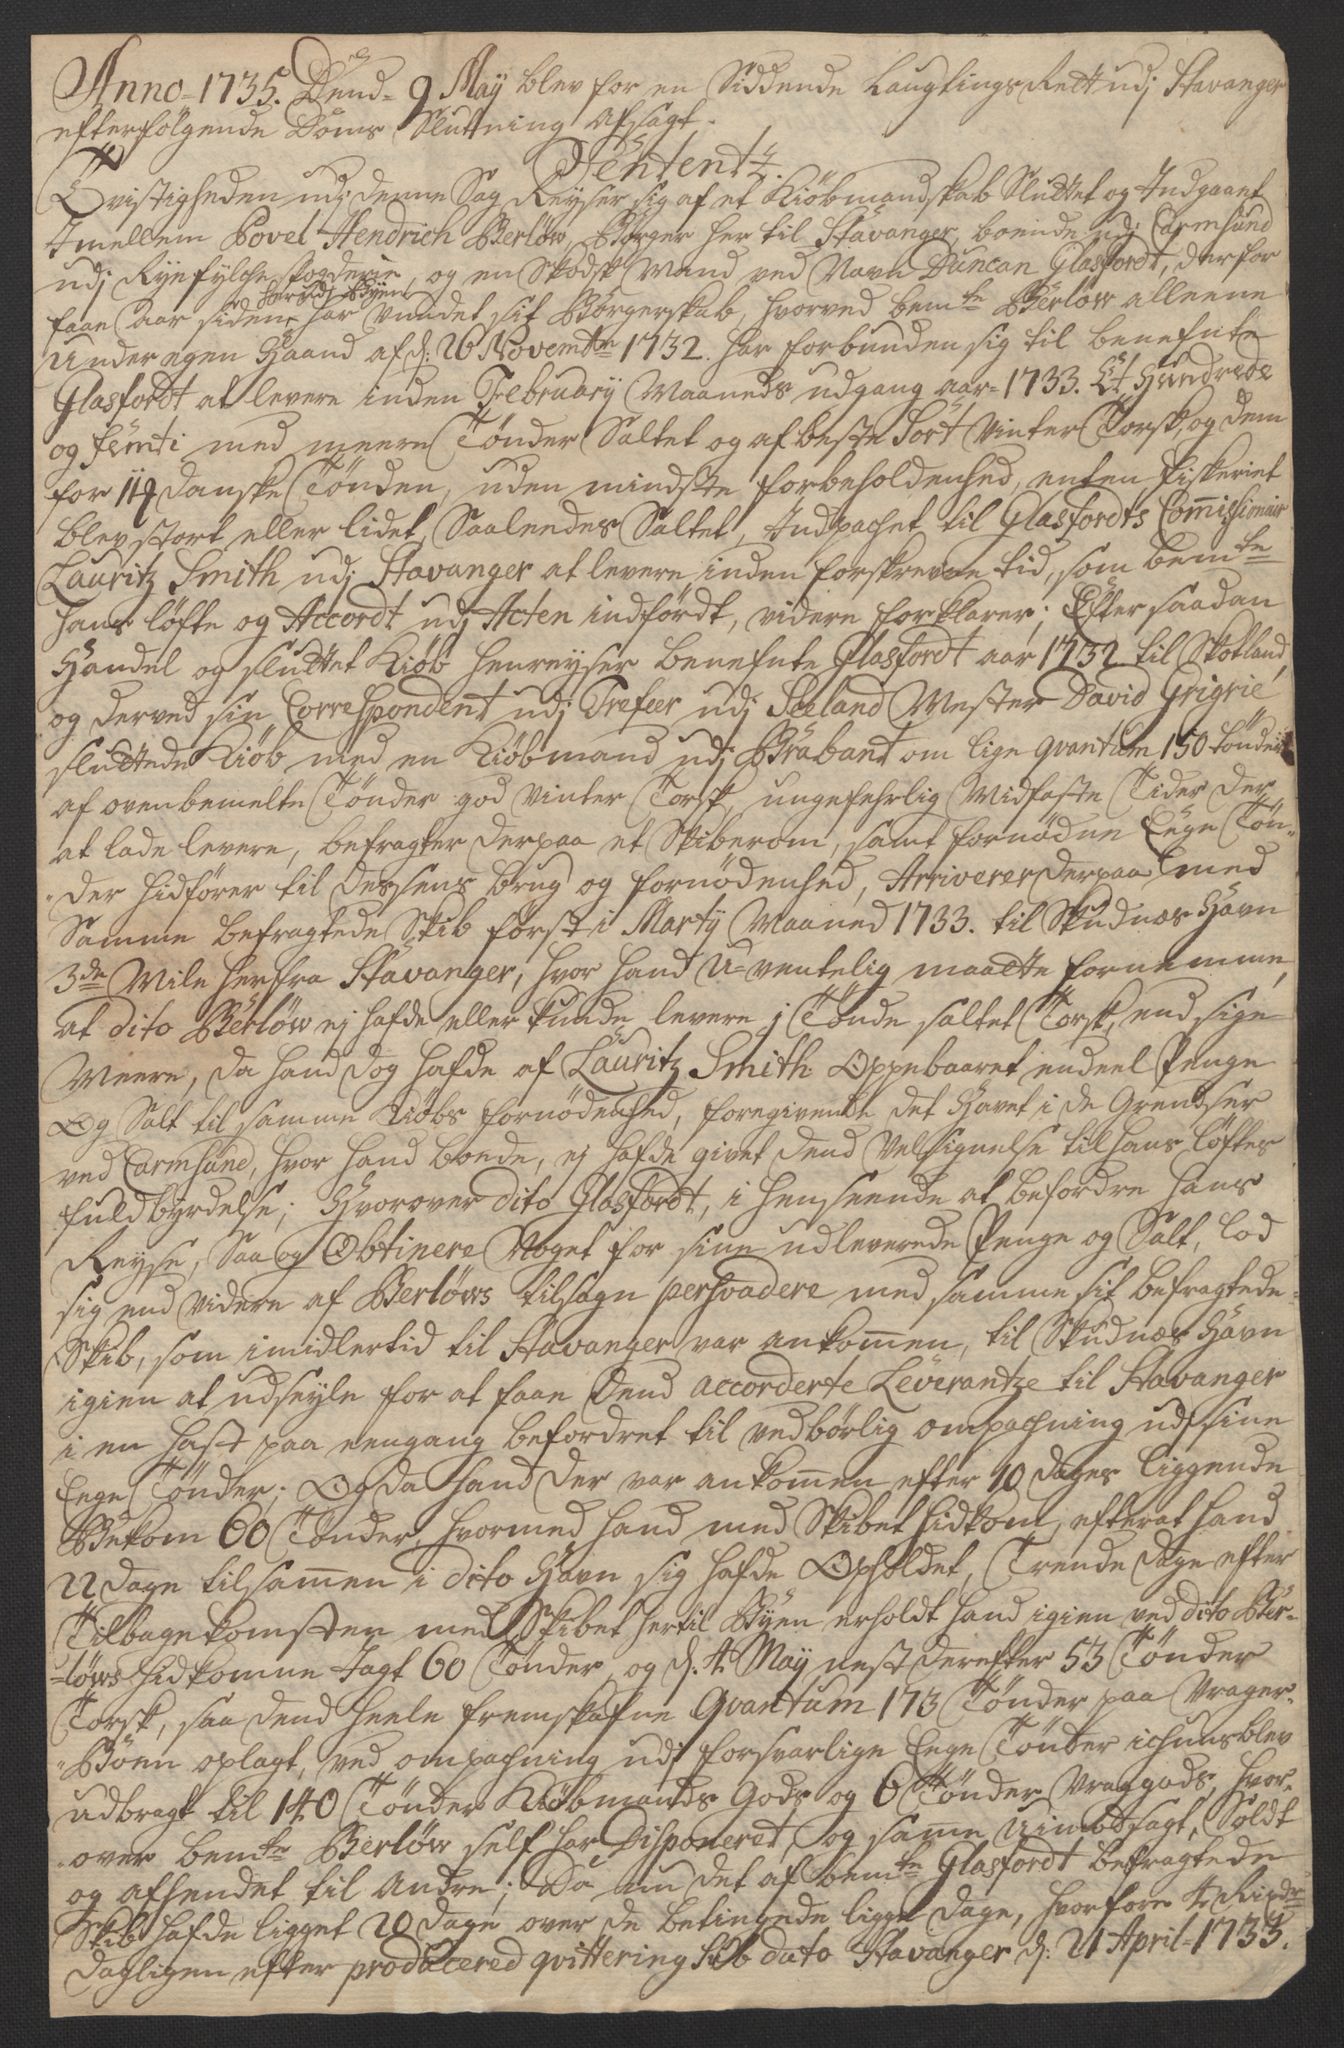 Anno 1735. Dend 9 May blev for en Siddende Laugtings Rett udj Stavanger
efterfölgende Doms Sluttning afsagt.
Sententz.
Tvistigheden udj denne Sag Reyser sig af et Kiöbmandskab Sluttet og Indgaaet
Imellem Povel Hendrich Berlöw, Borger her til Stavanger, boende udj Carmsund
udj Ryefylche fogderie, og en Skodsk Mand ved Navn Duncan Glasfordt, der for
herudj Byen
faae Aar siden har vundet sit Borgerskab, hvorved bemte Berlöw alleene
Under egen Haand af d: 26 Novembr 1732. har forbunden sig til benefnte
Glasfordt at levere inden February Maaneds udgang aar 1733. Et Hundrede
og femti med meere Tönder Saltet og af beste Sort Vinter Torsk, og dem
for 11 Danske Tönden, uden mindste forbeholdenhed, enten fiskeriet
blev stort eller lidet, Saaledes Saltet, Indpachet til Glasfordts Comissionair
Lauritz Smith udj Stavanger at levere inden forskrevne tid, som bemte
hans löfte og Accordt udj Acten indfördt, videre forklarer; Efter saadan
Handel og sluttet Kiöb henreyser benefnte Glasfordt aar 1732 til Skotland,
og derved sin Correspondent udj Trefeer udj Seeland Mester David Grigrie
sluttede Kiöb med en Kiöbmand udj Brabant om lige qvantum 150 tönder
af ovenbemelte Tönder god Vinter Torsk, ungefehrlig Midfaste Tider der
at lade levere, befragter derpaa et Skiberom, samt fornödne Eege Tön-
der hidförer til dessens brug og fornödenhed, Arriverer derpaa med
Samme befragtede Skib först i Marty Maaned 1733. til Skudnæs Havn
3de Mile herfra Stavanger, hvor hand U-ventelig maatte fornemme,
at dito Berlöw ej hafde eller kunde levere 1 Tönde saltet Torsk, end sige
Meere, da hand dog hafde af Lauritz Smith Oppebaaret endeel Penge
Og Salt til samme Kiöbs fornödenhed, foregivende det Havet i de Grendser
ved Carmsund, hvor hand boede, ej hafde givet dend Velsignelse til hans löftes
fuldbyrdelse; Hvorover dito Glasfordt, i henseende at befordre hans
Reyse, Saa og Obtinere Noget for sine udleverede Penge og Salt, lod
sig end videre af Berlöws tilsagn persvadere med samme sit befragtede
Skib, som imidlertid til Stavanger var ankommen, til Skudnæs Havn
igien at udseyle for at faae dend accorderte Leverantze til Stavanger
i en hast paa eengang befordret til vedbörlig ompachning udj sine
Eege Tönder; Og da hand der var ankommen efter 10 dages liggende
Bekom 60 Tönder, hvormed hand med Skibet hidkom, efterat hand
22 dage tilsammen i dito Havn sig hafde Opholdet, Trende dage efter
Tilbagekomsten med Skibet hertil Byen erholdt hand igien ved dito Ber-
löws hidkomne Jagt 60 Tönder, og d. 4 May nest derefter 53 Tönder
Torsk, saa dend heele fremskafne Qvantum 173 Tönder paa Vrager-
Boen oplagt, ved ompachning udj forsvarlige Eege Tönder ichuns blev
udbragt til 140 Tönder Kiöbmands Gods og 6 Tönder Vraggods, hvor-
over bemte Berlöw self har Disponeret, og same Uimodsagt, Soldt
og afhendet til Andre; Da nu det af bemte Glasfordt befragtede
Skib hafde ligget 20 dage over de betingede ligge dage, hvorfore 4 Rixdr
dagligen efter producered qvittering sub dato Stavanger d: 21 April 1733.